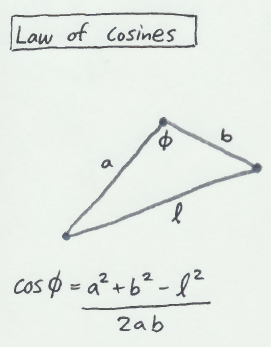 Law of Cosines
a
b
ϕ
l
cos ϕ = a² + b² - l²
2ab